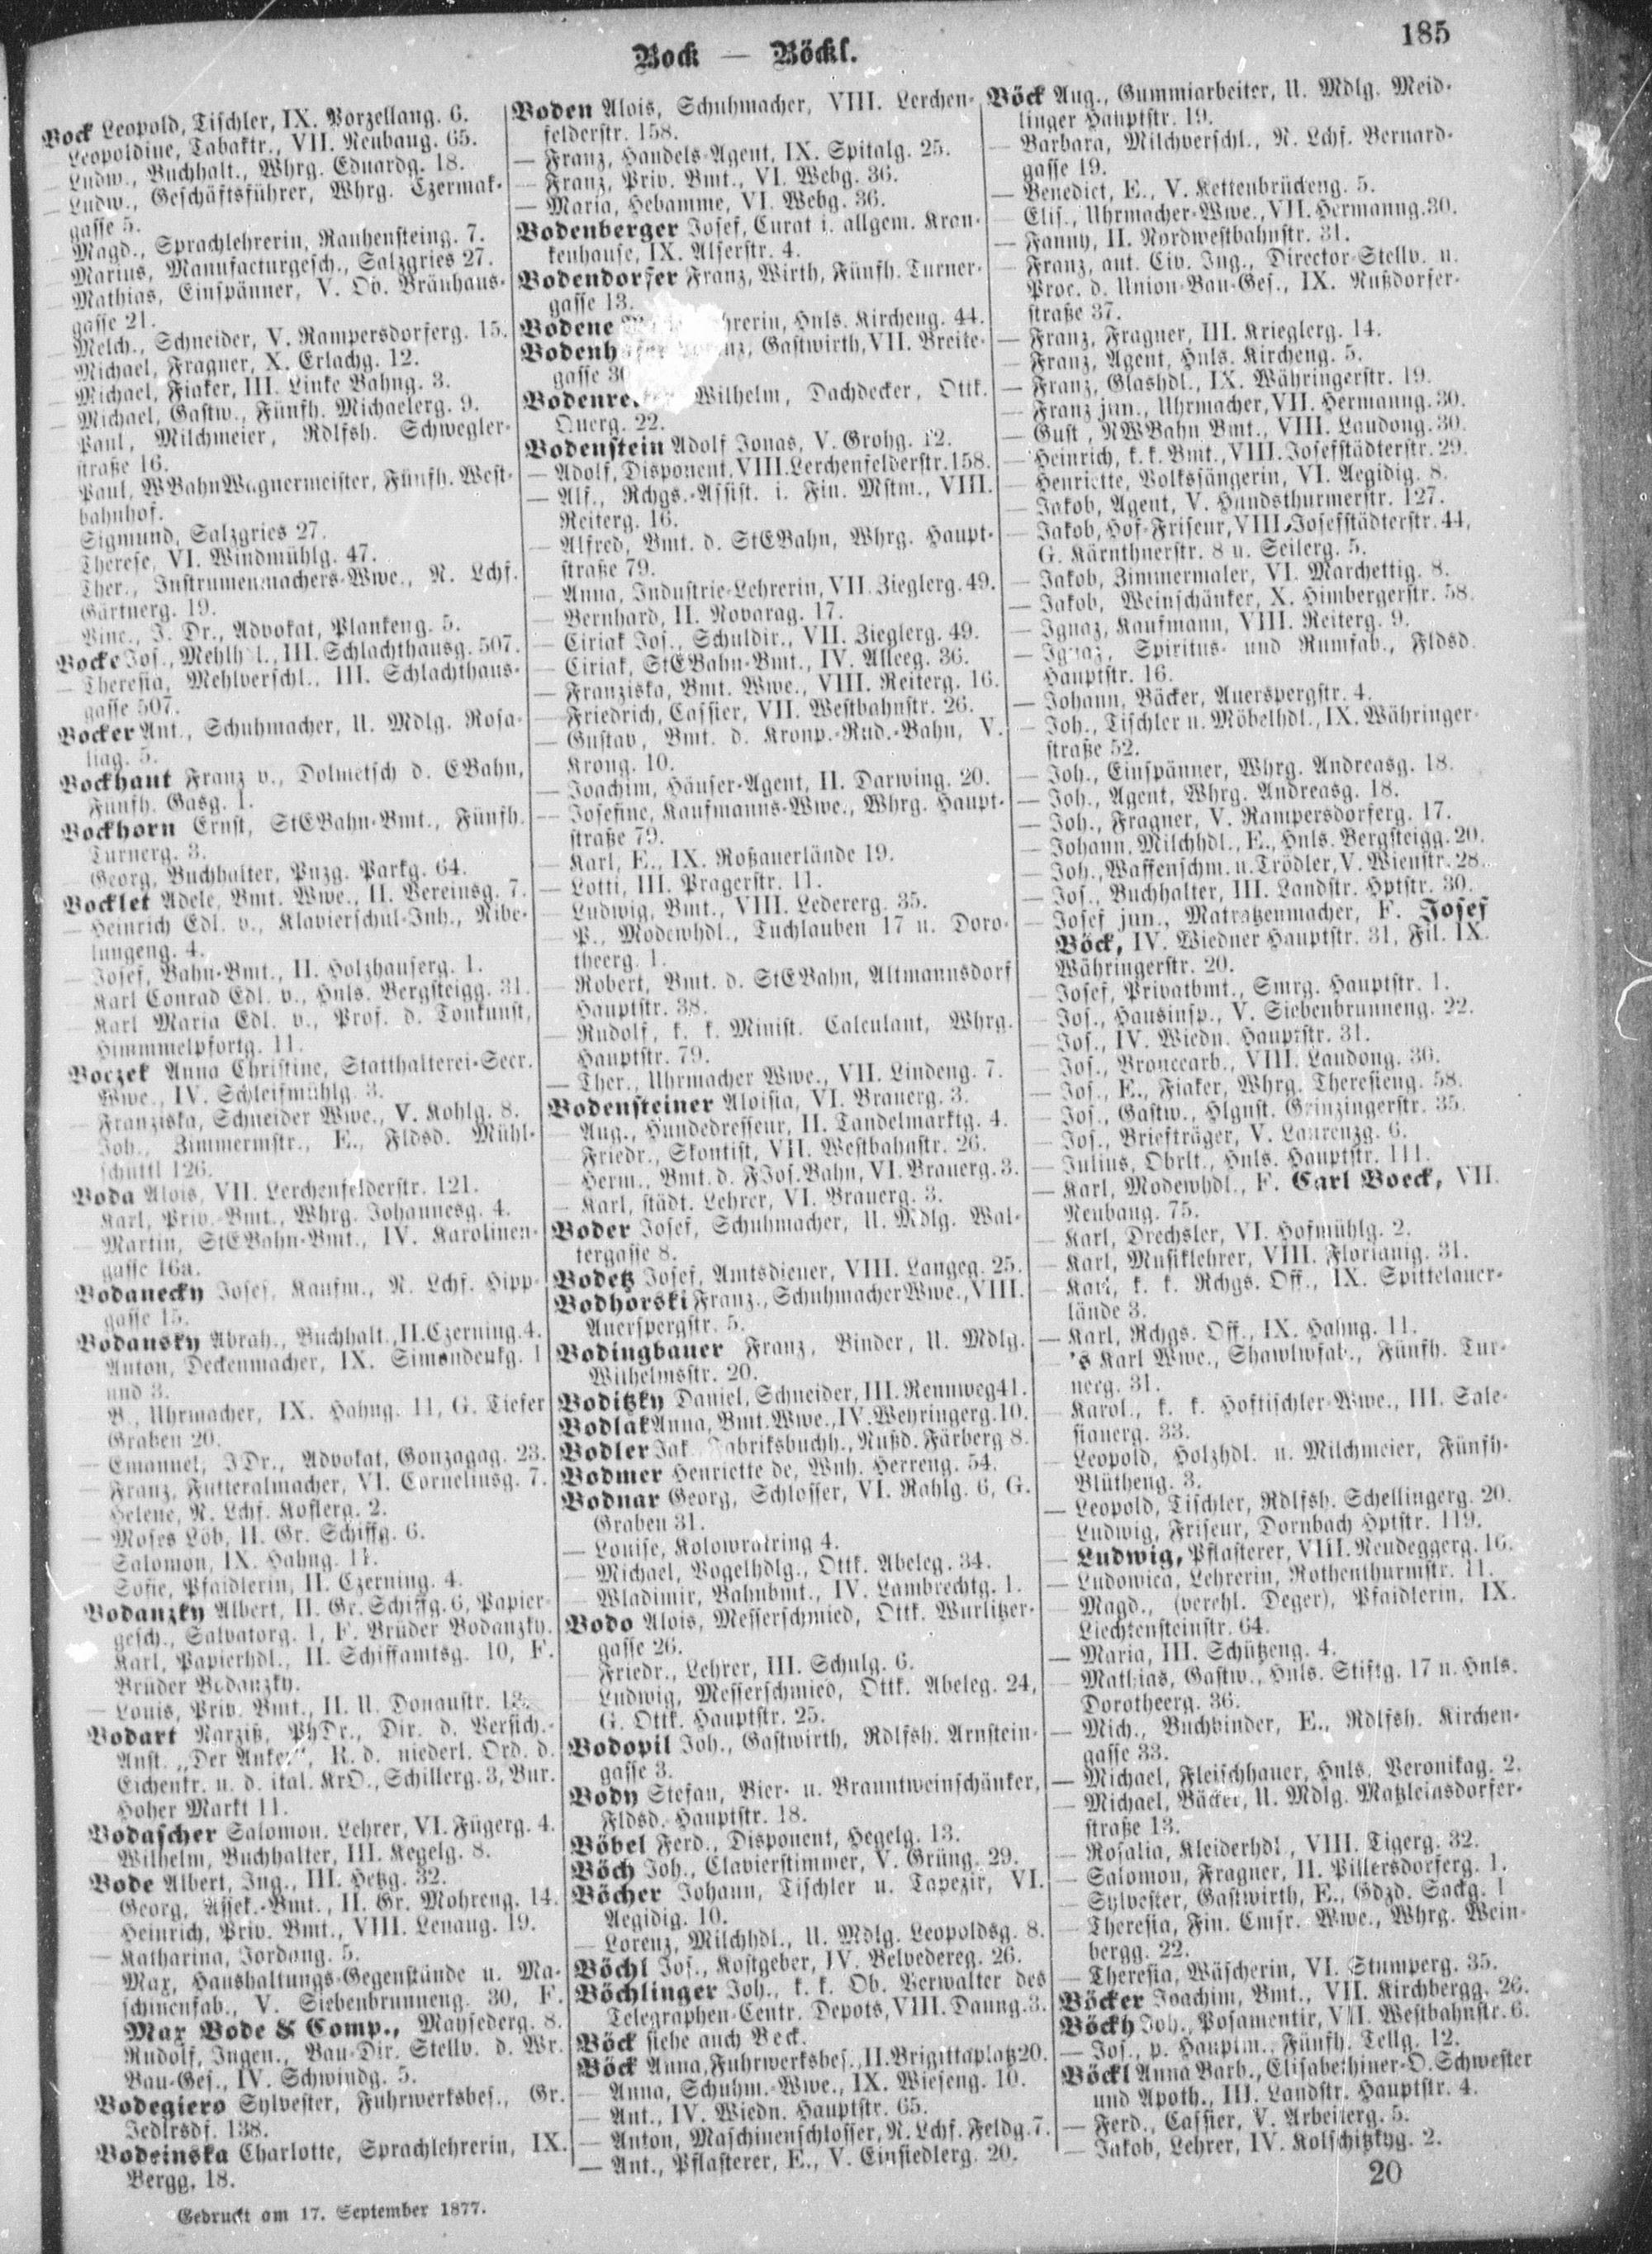 185
Bock — Böckl.
Bock Leopold, Tischler, IX. Porzellang. 6.
— Leopoldine, Tabaktr., VII. Neubaug. 65.
— Ludw., Buchhalt., Whrg. Eduardg. 18.
— Ludw., Geschäftsführer, Whrg. Czermak-
gasse 5.
— Magd., Sprachlehrerin, Rauhensteing. 7.
— Marius, Manufacturgesch., Salzgries 27.
— Mathias, Einspänner, V. Ob. Bräuhaus-
gasse 21.
— Melch., Schneider, V. Rampersdorferg. 15.
— Michael, Fragner, X. Erlachg. 12.
— Michael, Fiaker, III. Linke Bahng. 3.
— Michael, Gastw., Fünfh. Michaelerg. 9.
Paul, Milchmeier, Rdlfsh. Schwegler-
straße 16.
Paul, WBahnWagnermeister, Fünfh. West-
bahnhof.
Sigmund, Salzgries 27.
— Therese, VI. Windmühlg. 47.
— Ther., Instrumenmachers-Wwe., N. Lchf.
Gärtnerg. 19.
— Vinc., J. Dr., Advokat, Plankeng. 5.
Bocke Jos., Mehlh l., III. Schlachthausg. 507.
— Theresia, Mehlverschl., III. Schlachthaus-
gasse 507.
Bocker Ant., Schuhmacher, U. Mdlg. Rosa-
liag. 5.
Bockhaut Franz v., Dolmetsch d. EBahn,
Fünfh. Gasg. 1.
Bockhorn Ernst, StEBahn-Bmt., Fünfh.
Turnerg. 3.
— Georg, Buchhalter, Pnzg. Parkg. 64.
Bocklet Adele, Bmt. Wwe., II. Vereinsg. 7.
— Heinrich Edl. v., Klavierschul-Inh., Nibe-
lungeng. 4.
— Josef, Bahn-Bmt., II. Holzhauserg. 1.
Karl Conrad Edl. v., Hnls. Bergsteigg. 31.
Karl Maria Edl. v., Prof. d. Tonkunst,
Himmmelpfortg. 11.
Boczek Anna Christine, Statthalterei-Secr.
Wwe., IV. Schleifmühlg. 3.
— Franziska, Schneider Wwe., V. Kohlg. 8.
Joh., Zimmermstr., E., Fldsd. Mühl-
schüttl 126.
Boda Alois, VII. Lerchenfelderstr. 121.
— Karl, Priv. Bmt., Whrg. Johannesg. 4.
— Martin, StEBahn-Bmt., IV. Karolinen-
gasse 16a.
Bodanecky Josef, Kaufm., N. Lchf. Hipp-
gasse 15.
Bodansky Abrah., Buchhalt., II. Czerning. 4.
Anton, Deckenmacher, IX. Simondenkg. 1
und 3.
B., Uhrmacher, IX. Hahng. 11, G. Tiefer
Graben 20.
— Emanuel, JDr., Advokat, Gonzagag. 23.
— Franz, Futteralmacher, VI. Corneliusg. 7.
Helene, N. Lchf. Koflerg. 2.
— Moses Löb, II. Gr. Schiffg. 6.
Salomon, IX. Hahng. 11.
Sofie, Pfaidlerin, II. Czerning. 4.
Bodanzky Albert, II. Gr. Schiffg. 6, Papier-
gesch., Salvatorg. 1, F. Brüder Bodanzky.
Karl, Papierhdl., II. Schiffamtsg. 10, F.
Brüder Bodanzky.
— Louis, Priv. Bmt., II. U. Donaustr. 13.
Bodart Narziß, PhDr., Dir. d. Versich.-
Anst. „Der Anker", R. d. niederl. Ord. d.
Eichenkr. u. d. ital. KrO., Schillerg. 3, Bur.
Hoher Markt 11.
Bodascher Salomon. Lehrer, VI. Fügerg. 4.
— Wilhelm, Buchhalter, III. Kegelg. 8.
Bode Albert, Ing., III. Hetzg. 32.
Georg, Assek.-Bmt., II. Gr. Mohreng. 14.
Heinrich, Priv. Bmt., VIII. Lenaug. 19.
— Katharina, Jordang. 5.
— Max, Haushaltungs-Gegenstände u. Ma-
schinenfab., V. Siebenbrunneng. 30, F.
Max Bode & Comp., Maysederg. 8.
Rudolf, Ingen., Bau-Dir. Stellv. d. Wr.
Bau-Ges., IV. Schwindg. 5.
Bodegiero Sylvester, Fuhrwerksbes., Gr.
Jedlrsdf. 138.
Bodeinska Charlotte, Sprachlehrerin, IX.
Bergg. 18.
Gedruckt am 17. September 1877.
Boden Alois, Schuhmacher, VIII. Lerchen-
felderstr. 158.
— Franz, Handels-Agent, IX. Spitalg. 25.
— Franz, Priv. Bmt., VI. Webg. 36.
— Maria, Hebamme, VI. Webg. 36.
Bodenberger Josef, Curat i. allgem. Kran-
kenhause, IX. Alserstr. 4.
Bodendorfer Franz, Wirth, Fünfh. Turner-
gasse 13.
Bodene hrerin, Hnls. Kircheng. 44.
Bodenh nz, Gastwirth, VII. Breite-
gasse 30
Bodenre Wilhelm, Dachdecker, Ottk.
Querg. 22.
Bodenstein Adolf Jonas, V. Grohg. 12.
— Adolf, Disponent, VIII. Lerchenfelderstr. 158.
— Alf., Rchgs.-Assist. i. Fin. Mstm., VIII.
Reiterg. 16.
— Alfred, Bmt. d. StEBahn, Whrg. Haupt-
straße 79.
— Anna, Industrie-Lehrerin, VII. Zieglerg. 49.
— Bernhard, II. Novarag. 17.
— Ciriak Jos., Schuldir., VII. Zieglerg. 49.
— Ciriak, StEBahn-Bmt., IV. Alleeg. 36.
— Franziska, Bmt. Wwe., VIII. Reiterg. 16.
— Friedrich, Cassier, VII. Westbahnstr. 26.
— Gustav, Bmt. d. Kronp.-Rud.-Bahn, V.
Krong. 10.
— Joachim, Häuser-Agent, II. Darwing. 20.
— Josefine, Kaufmanns-Wwe., Whrg. Haupt-
straße 79.
— Karl, E., IX. Roßauerlände 19.
— Lotti, III. Pragerstr. 11.
— Ludwig, Bmt., VIII. Ledererg. 35.
— P., Modewhdl., Tuchlauben 17 u. Doro-
theerg. 1.
— Robert, Bmt. d. StEBahn, Altmannsdorf
Hauptstr. 38.
— Rudolf, k. k. Minist. Calculant, Whrg.
Hauptstr. 79.
— Ther., Uhrmacher Wwe., VII. Lindeng. 7.
Bodensteiner Aloisia, VI. Brauerg. 3.
— Aug., Hundedresseur, II. Tandelmarktg. 4.
— Friedr., Skontist, VII. Westbahnstr. 26.
— Herm., Bmt. d. FJos.Bahn, VI. Brauerg. 3.
— Karl, städt. Lehrer, VI. Brauerg. 3.
Boder Josef, Schuhmacher, U. Mdlg. Wal-
tergasse 8.
Bodetz Josef, Amtsdiener, VIII. Langeg. 25.
Bodhorski Franz., Schuhmacher Wwe., VIII.
Auerspergstr. 5.
Bodingbauer Franz, Binder, U. Mdlg.
Wilhelmsstr. 20.
Boditzky Daniel, Schneider, III. Rennweg 41.
Bodlak Anna, Bmt. Wwe., IV. Weyringerg. 10.
Bodler Jak., Fabriksbuchh., Nußd. Färberg 8.
Bodmer Henriette de, Wnh. Herreng. 54.
Bodnar Georg, Schlosser, VI. Rahlg. 6, G.
Graben 31.
— Louise, Kolowratring 4.
— Michael, Vogelhdlg., Ottk. Abeleg. 34.
— Wladimir, Bahnbmt., IV. Lambrechtg. 1.
Bodo Alois, Messerschmied, Ottk. Wurlitzer-
gasse 26.
— Friedr., Lehrer, III. Schulg. 6.
— Ludwig, Messerschmied, Ottk. Abeleg. 24,
G. Ottk. Hauptstr. 25.
Bodopil Joh., Gastwirth, Rdlfsh. Arnstein-
gasse 3.
Body Stefan, Bier- u. Branntweinschänker,
Fldsd. Hauptstr. 18.
Böbel Ferd., Disponent, Hegelg. 13.
Böch Joh., Clavierstimmer, V. Grüng. 29.
Böcher Johann, Tischler u. Tapezir, VI.
Aegidig. 10.
— Lorenz, Milchhdl., U. Mdlg. Leopoldsg. 8.
Böchl Jos., Kostgeber, IV. Belvedereg. 26.
Böchlinger Joh., k. k. Ob. Verwalter des
Telegraphen-Centr. Depots, VIII. Daung. 3.
Böck siehe auch Beck.
Böck Anna, Fuhrwerksbes., II. Brigittaplatz 20.
— Anna, Schuhm.-Wwe., IX. Wieseng. 10.
— Ant., IV. Wiedn. Hauptstr. 65.
— Anton, Maschinenschlosser, N. Lchf. Feldg. 7.
— Ant., Pflasterer, E., V. Einsiedlerg. 20.
Böck Aug., Gummiarbeiter, U. Mdlg. Meid-
linger Hauptstr. 19.
— Barbara, Milchverschl., N. Lchf. Bernard-
gasse 19.
— Benedict, E., V. Kettenbrückeng. 5.
— Elis., Uhrmacher-Wwe., VII. Hermanng. 30.
— Fanny, II. Nordwestbahnstr. 31.
— Franz, aut. Civ. Ing., Director-Stellv. u.
Proc. d. Union-Bau-Ges., IX. Nußdorfer-
straße 37.
— Franz, Fragner, III. Krieglerg. 14.
— Franz, Agent, Hnls. Kircheng. 5.
— Franz, Glashdl., IX. Währingerstr. 19.
— Franz jun., Uhrmacher, VII. Hermanng. 30.
— Gust, NWBahn Bmt., VIII. Laudong. 30.
— Heinrich, k. k. Bmt., VIII. Josefstädterstr. 29.
— Henriette, Volksjängerin, VI. Aegidig. 8.
— Jakob, Agent, V. Hundsthurmerstr. 127.
— Jakob, Hof-Friseur, VIII. Josefstädterstr. 44,
G. Kärnthnerstr. 8 u. Seilerg. 5.
— Jakob, Zimmermaler, VI. Marchettig. 8.
— Jakob, Weinschänker, X. Himbergerstr. 58.
— Ignaz, Kaufmann, VIII. Reiterg. 9.
— Ignaz, Spiritus- und Rumfab., Fldsd.
Hauptstr. 16.
— Johann, Bäcker, Auerspergstr. 4.
— Joh., Tischler u. Möbelhdl., IX. Währinger-
straße 52.
— Joh., Einspänner, Whrg. Andreasg. 18.
— Joh., Agent, Whrg. Andreasg. 18.
— Joh., Fragner, V. Rampersdorferg. 17.
— Johann, Milchhdl., E., Hnls. Bergsteigg. 20.
— Joh., Waffenschm. u. Trödler, V. Wienstr. 28.
— Jos., Buchhalter, III. Landstr. Hptstr. 30.
— Josef jun., Matratzenmacher, F. Josef
Böck, IV. Wiedner Hauptstr. 31, Fil. IX.
Währingerstr. 20.
— Josef, Privatbmt., Smrg. Hauptstr. 1.
— Jos., Hausinsp., V. Siebenbrunneng. 22.
— Jos., IV. Wiedn. Hauptstr. 31.
— Jos., Broncearb., VIII. Laudong. 36.
— Jos., E., Fiaker, Whrg. Theresieng. 58.
— Jos., Gastw., Hlgnst. Grinzingerstr. 35.
— Jos., Briefträger, V. Laurenzg. 6.
— Julius, Obrlt., Hnls. Hauptstr. 111.
— Karl, Modewhdl., F. Carl Boeck, VII.
Neubaug. 75.
— Karl, Drechsler, VI. Hofmühlg. 2.
— Karl, Musiklehrer, VIII. Florianig. 31.
— Karl, k. k. Rchgs. Off., IX. Spittelauer-
lände 3.
— Karl, Rchgs. Off., IX. Hahng. 11.
— 's Karl Wwe., Shawlwfab., Fünfh. Tur-
nerg. 31.
— Karol., k. k. Hoftischler-Wwe., III. Sale-
sianerg. 33.
— Leopold, Holzhdl. u. Milchmeier, Fünfh.
Blütheng. 3.
— Leopold, Tischler, Rdlfsh. Schellingerg. 20.
Ludwig, Friseur, Dornbach Hptstr. 119.
— Ludwig, Pflasterer, VIII. Neudeggerg. 16.
— Ludowica, Lehrerin, Rothenthurmstr. 11.
— Magd., (verehl. Deger), Pfaidlerin, IX.
Liechtensteinstr. 64.
— Maria, III. Schützeng. 4.
— Mathias, Gastw., Hnls. Stiftg. 17 u. Hnls.
Dorotheerg. 36.
— Mich., Buchbinder, E., Rdlfsh. Kirchen-
gasse 33.
— Michael, Fleischhauer, Hnls. Veronikag. 2.
— Michael, Bäcker, U. Mdlg. Matzleinsdorfer-
straße 13.
— Rosalia, Kleiderhdl., VIII. Tigerg. 32.
— Salomon, Fragner, II. Pillersdorferg. 1.
— Sylvester, Gastwirth, E., Gdzd. Sackg. 1
— Theresia, Fin. Cmsr. Wwe., Whrg. Wein-
bergg. 22.
— Theresia, Wäscherin, VI. Stumperg. 35.
Böcker Joachim, Bmt., VII. Kirchbergg. 26.
Böckh Joh., Posamentir, VII. Westbahnstr. 6.
— Jos., p. Hauptm., Fünfh. Tellg. 12.
Böckl Anna Barb., Elisabethiner-O. Schwester
und Apoth., III. Landstr. Hauptstr. 4.
— Ferd., Cassier, V. Arbeiterg. 5.
— Jakob, Lehrer, IV. Kolschitzkyg. 2.
20